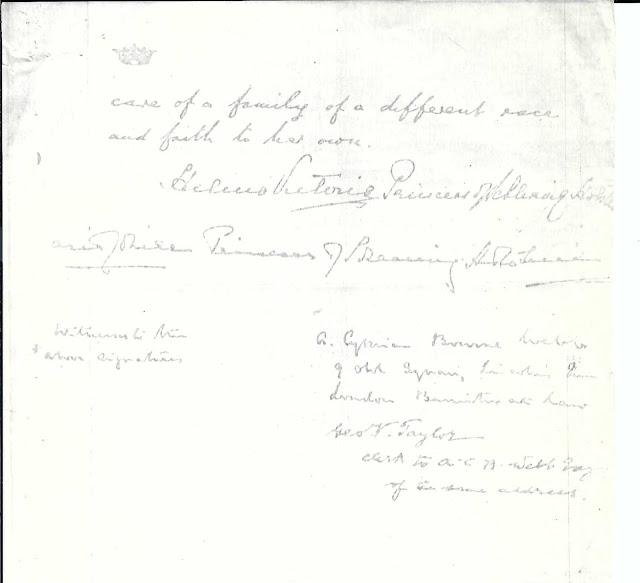 care of a family of a different race
and faith to her own.
Helena Victoria Princess of Schleswig Holstein
Princess of Schleswig Holstein
Witness to the
above signatures
A. Cyprian Bourne Webb
9 Old Square, Lincoln's Inn
London Barrister at Law
Geo V. Taylor
Clerk to A. C. B. Webb Esq
of the same address.